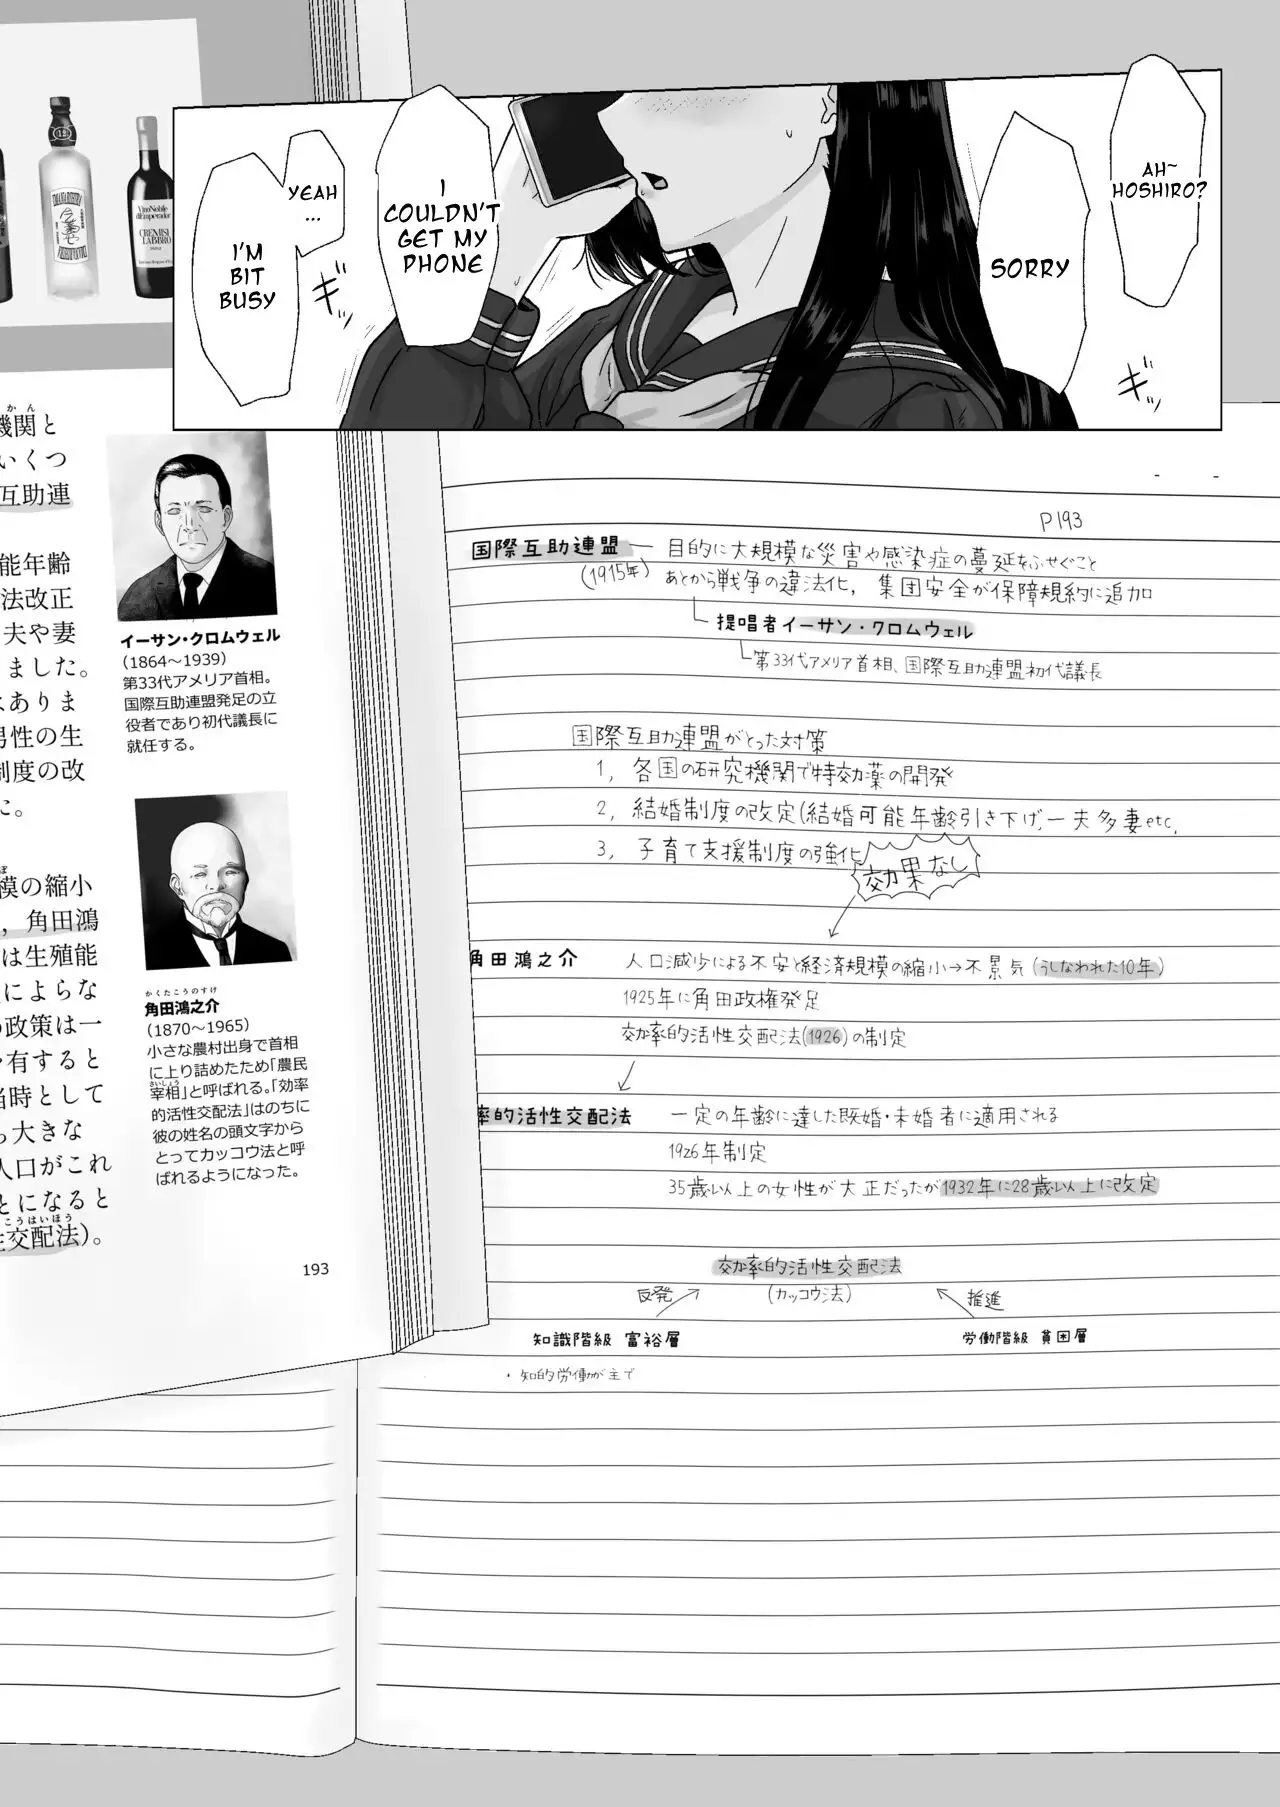 AH~
HOSHIRO?
SORRY
I
COULDN'T
GET MY
PHONE
YEAH
...
I'M
BIT
BUSY
ギッ
ギッ
12
VinoNobile
diEmperador
CREMISI
LABBRO
かん
機関と
いくつ
互助連
能年齢
法改正
夫や妻
りました。
はありま
男性の生
制度の改
た。
模の縮小
，角田鴻
は生殖能
によらな
の政策は一
を有すると
当時として
ら大きな
人口がこれ
とになると
こうはいほう
性交配法)。
イーサン・クロムウェル
(1864～1939)
第33代アメリア首相。
国際互助連盟発足の立
役者であり初代議長に
就任する。
かくたこうのすけ
角田鴻之介
(1870～1965)
小さな農村出身で首相
に上り詰めたため「農民
さいしょう
宰相」と呼ばれる。「効率
的活性交配法」はのちに
彼の姓名の頭文字から
とってカッコウ法と呼
ばれるようになった。
193
P193
国際互助連盟 ― 目的に大規模な災害や感染症の蔓延をふせぐこと
(1915年) あとから戦争の違法化, 集団安全が保障規約に追加
提唱者イーサン・クロムウェル
第33代アメリア首相、国際互助連盟初代議長
国際互助連盟がとった対策
1, 各国の研究機関で特効薬の開発
2, 結婚制度の改定(結婚可能年齢引き下げ, 一夫多妻etc,
3, 子育て支援制度の強化
効果なし
角田鴻之介 人口減少による不安と経済規模の縮小→不景気(うしなわれた10年)
1925年に角田政権発足
効率的活性交配法(1926)の制定
率的活性交配法 一定の年齢に達した既婚・未婚者に適用される
1926年制定
35歳以上の女性が大正だったが1932年に28歳以上に改定
効率的活性交配法
(カッコウ法)
反発
推進
知識階級 富裕層
労働階級 貧困層
・知的労働が主で